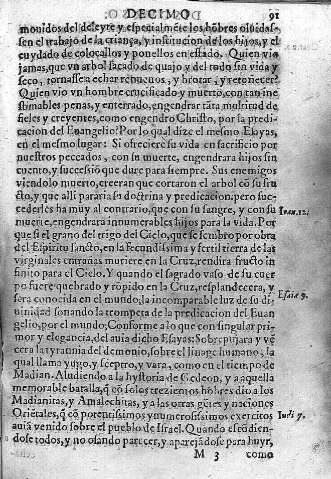 DECIMO 91
monidos del deleyte y especialmẽte los hõbres oluidas-
sen el trabajo de la criança, y institucion de los hijos, y el
cuydado de colocallos y ponellos en estado. Quien vio
jamas, que vn arbol sacado de quajo y del todo sin vida y
seco, tornasse a echar renueuos, y brotar, y retoñecer?
Quien vio vn hombre crucificado y muerto, con tan ine-
stimables penas, y enterrado, engendrar tãta multitud de
fieles y creyentes, como engendro Christo, por la predi-
cacion del Euangelio? Por lo qual dize el mesmo Esayas,
en el mesmo lugar: Si ofreciere su vida en sacrificio por
nuestros peccados, con su muerte, engendrara hijos sin
cuento, y successiõ que dure para siempre. Sus enemigos
viendolo muerto, creeran que cortaron el arbol cõ su fru
cto, y que alli pararia su doctrina y predicacion. pero suc-
cederles ha muy al contrario, que con su sangre, y con su
muerte, engendrara innumerables hijos para la vida. Por
que si el grano del trigo del Cielo, que se sembro por obra
del Espiritu sancto, en la fecundissima y fertil tierra de las
virginales entrañas muriere en la Cruz, rendira fructo in
finito para el Cielo. Y quando el sagrado vaso de su cuer
po fuere quebrado y ropido en la Cruz, resplandecera, y
sera conocida en el mundo, la incomparable luz de su di-
uinidad sonando la trompeta de la predicacion del Euan
gelio, por el mundo; Conforme a lo que con singular pri-
mor y elegancia, del auia dicho Esayas: Sobrepujara y vẽ
cera la tyrannia del demonio, sobre el linage humano, la
qual llama yugo, y sceptro, y vara, como en el tiẽpo de
Madian. Aludiendo a la hystoria de Gedeon, y a aquella
memorable batalla, q̃ cõ solos trezientos hõbres dio a los
Madianitas, y Amalechitas, y a las otras gẽtes y naciones
Oriẽtales, q̃ cõ potentissimos y numerosissimos exercitos
auia venido sobre el pueblo de Israel. Quando esfõdien-
dose todos, y no osando parecer, y aparejãdose para huyr,
M 3 como
Ioan. 12.
Esaie 9.
Iudi 7.